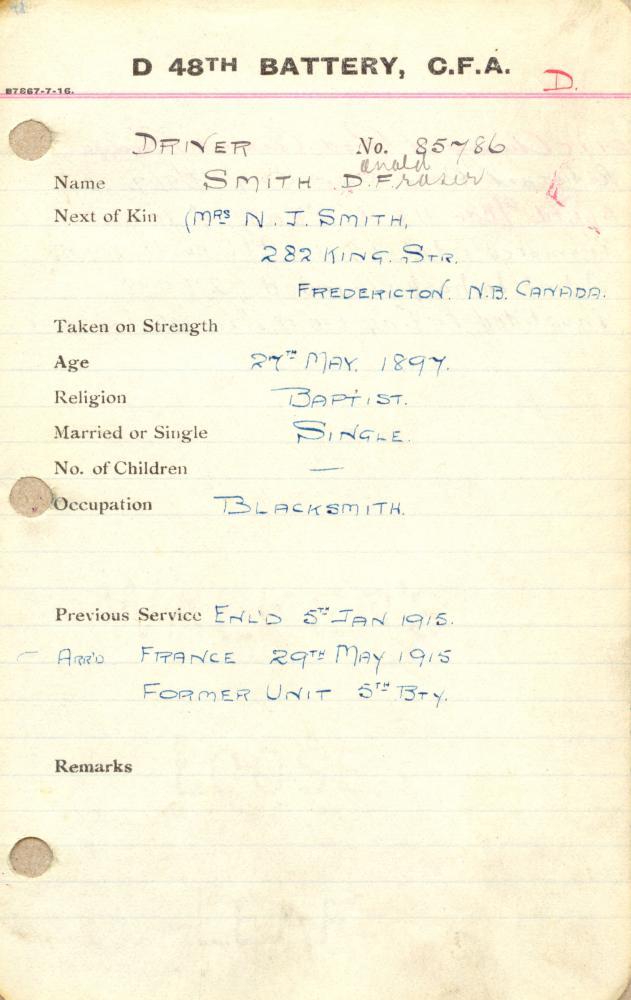 D 48TH BATTERY, C.F.A.
D.
B7867-7-16.
DRIVER No. 85786
onald
Name SMITH D. Fraser
Next of Kin (MRS N. J. SMITH,
282 KING. STR.
FREDERICTON. N.B. CANADA.
Taken on Strength
Age 27TH MAY. 1897.
Religion BAPTIST.
Married or Single SINGLE.
No. of Children —
Occupation BLACKSMITH.
Previous Service ENL'D 5TH JAN 1915.
ARR'D FRANCE 29TH MAY 1915
FORMER UNIT 5TH BTY.
Remarks